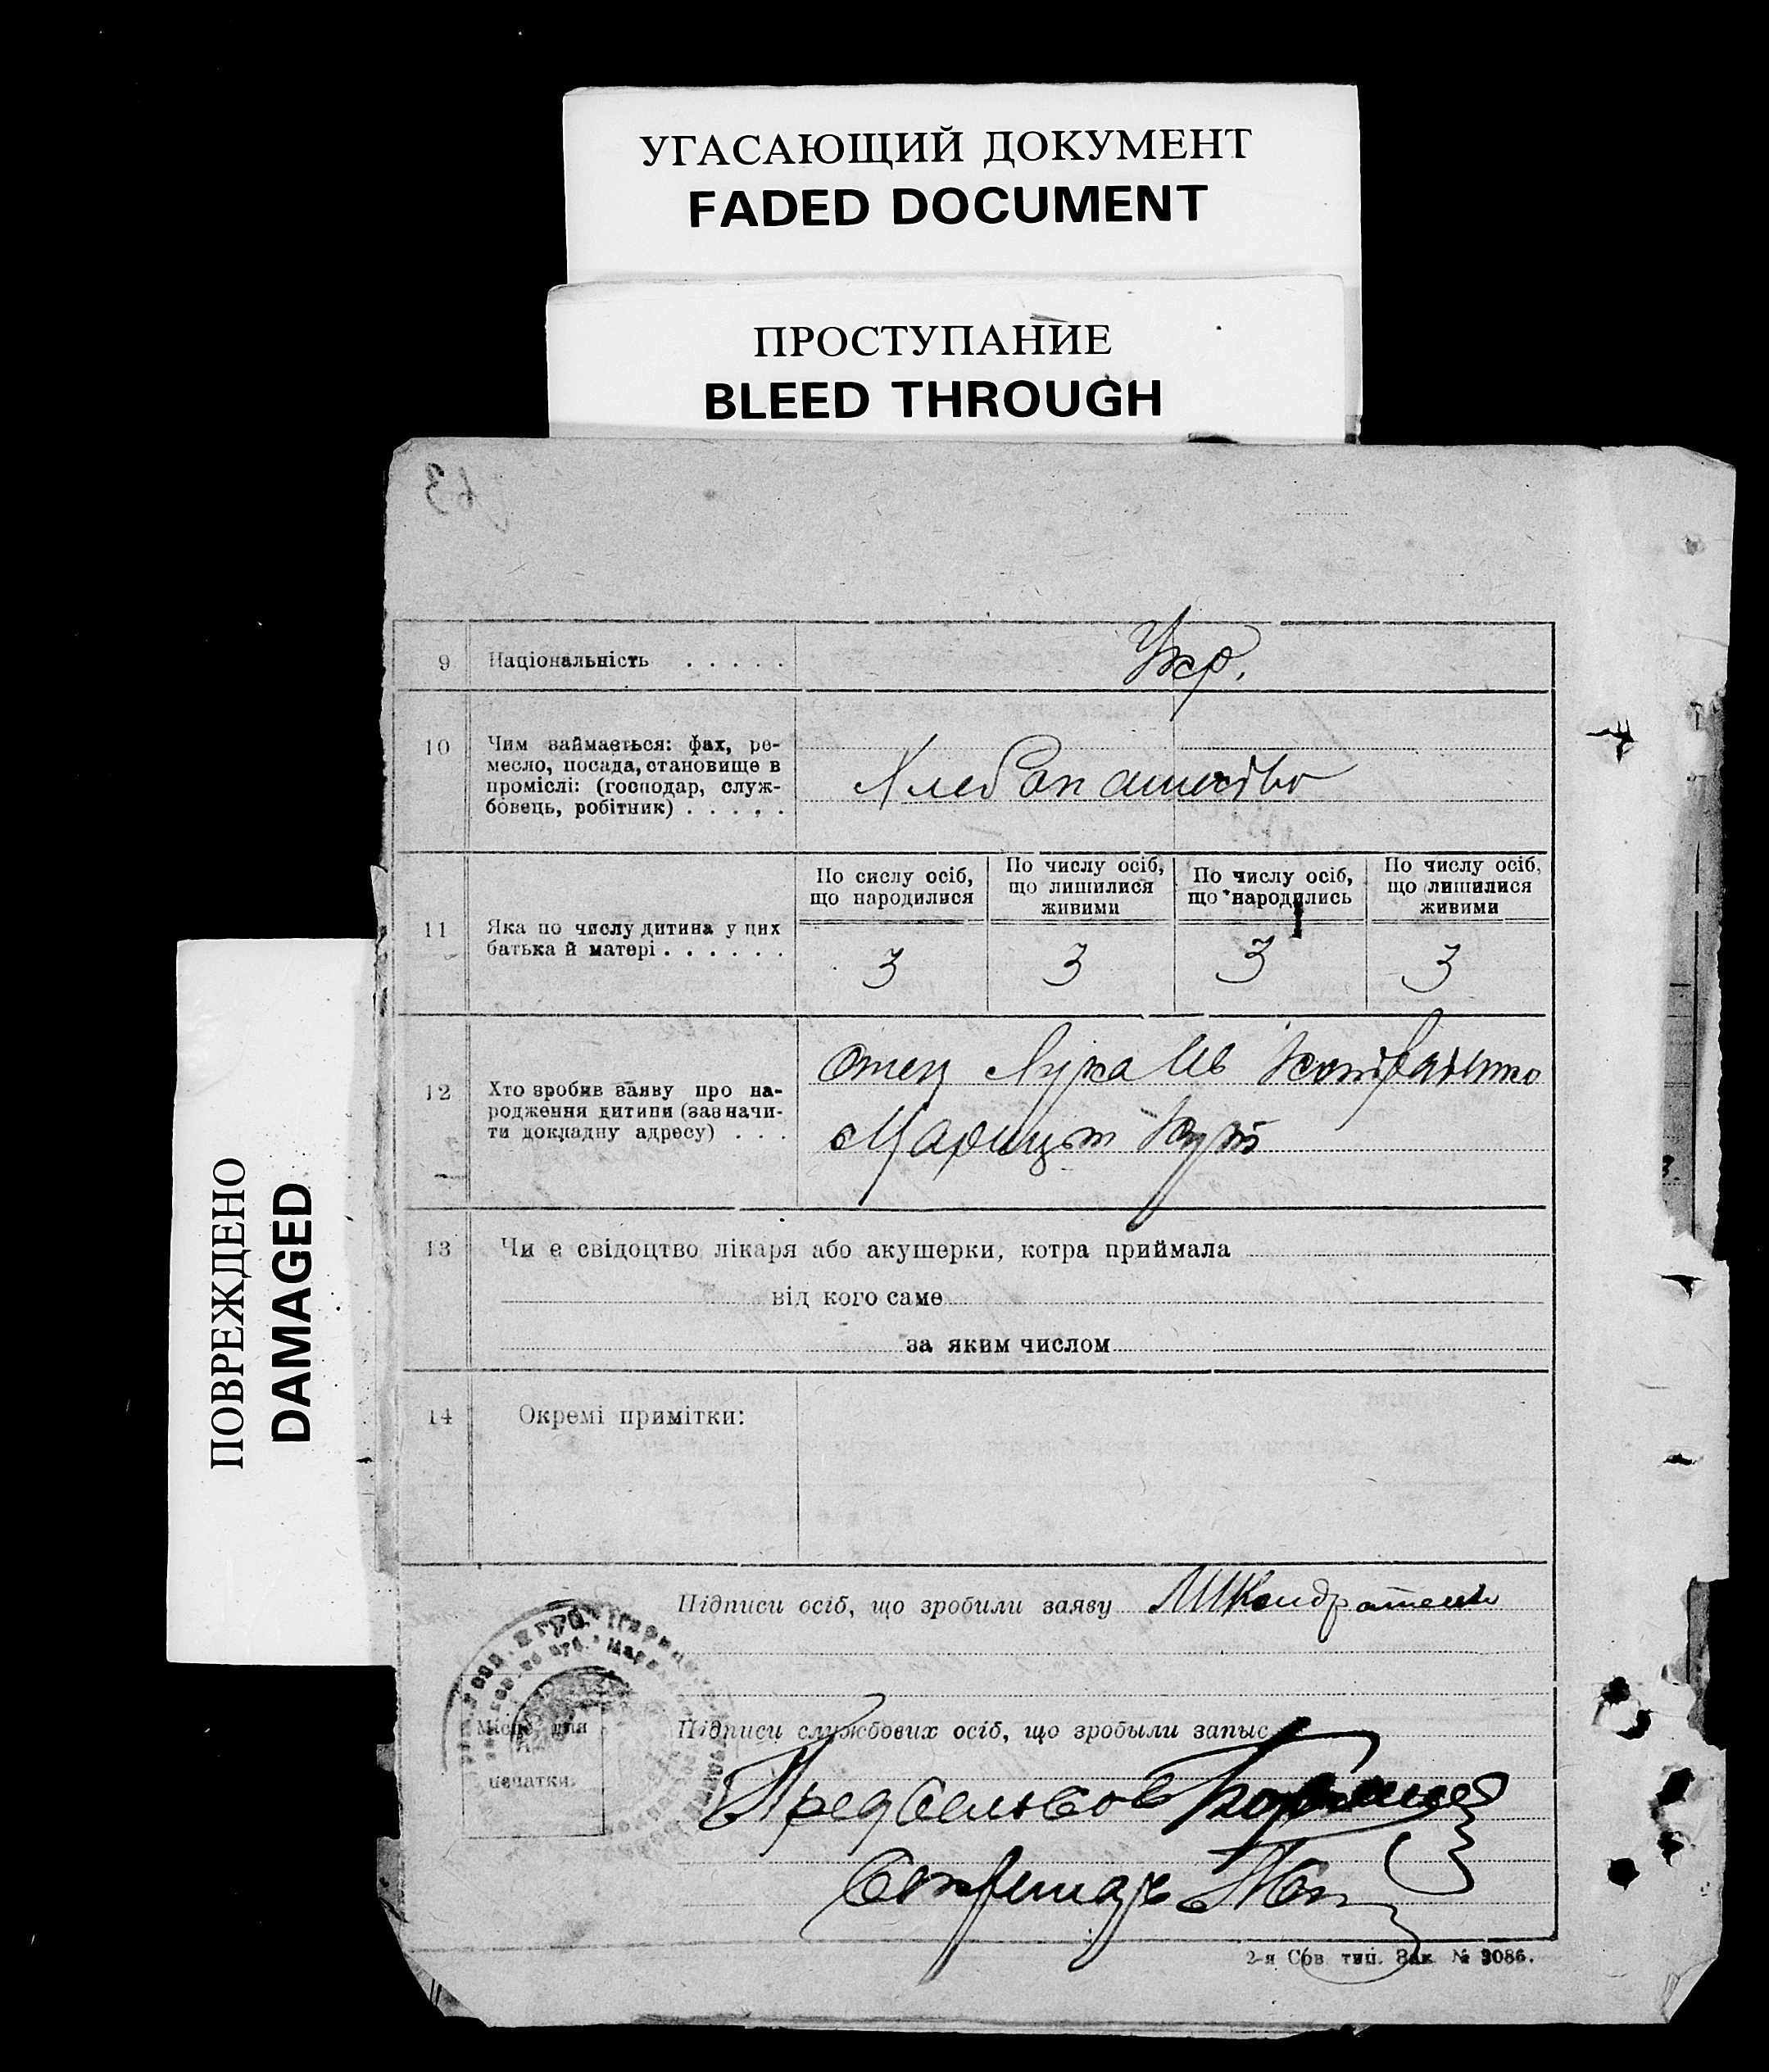 УГАСАЮЩИЙ ДОКУМЕНТ
FADED DOCUMENT
ПРОСТУПАНИЕ
BLEED THROUGH
ПОВРЕЖДЕНО
DAMAGED
9 Національність . . . . . Укр.
10 Чим займається: фах, ре-
месло, посада, становище в
проміслі: (господар, служ-
бовець, робітник) . . . . .
Хлебопашество
11 Яка по числу дитина у цих
батька й матері . . . . . .
По сислу осіб,
що народилися
3
По числу осіб,
що лишилися
живими
3
По числу осіб,
що народились
3
По числу осіб,
що лишилися
живими
3
12 Хто зробив заяву про на-
родження дитини (зазначи-
ти докладну адресу) . . .
Отец Лука Ив Кондратенко
13 Чи є свідоцтво лікаря або акушерки, котра приймала
від кого саме
за яким числом
14 Окремі примітки:
Підписи осіб, що зробили заяву Кондратенко
Місце для
печатки.
Підписи службових осіб, що зробыли запыс
Пред Сельсов
Секретарь
2-я Сов тип. Зак № 3086.